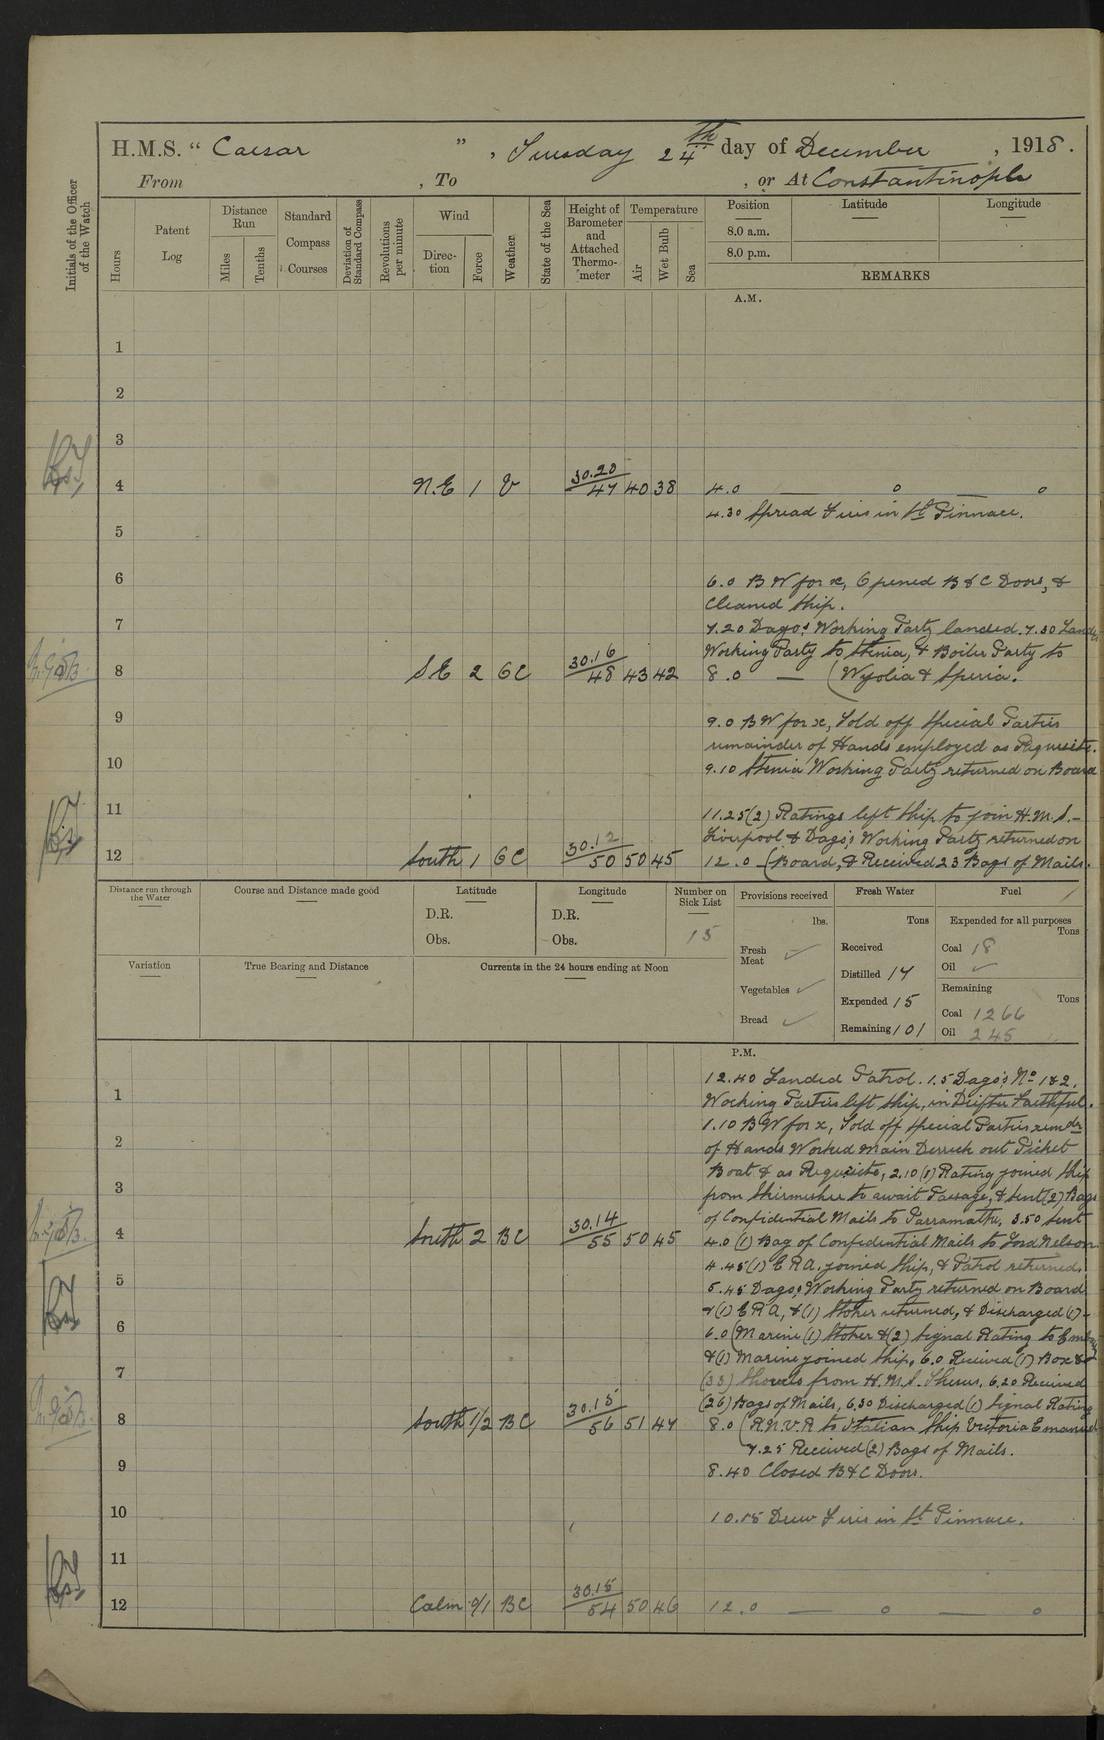 H.M.S. " Caesar ", Tuesday 24th day of December, 1918.
From , To , or At Constantinople
Initials of the Officer of the Watch
Hours
Patent Log
Distance Run
Miles
Tenths
Standard Compass Courses
Deviation of Standard Compass
Revolutions per minute
Wind
Direction
Force
Weather
State of the Sea
Height of Barometer and Attached Thermometer
Temperature
Air
Wet Bulb
Sea
Position
Latitude
Longitude
8.0 a.m.
8.0 p.m.
REMARKS
A.M.
1
2
3
4 N.E 1 V 30.20 47 40 38 4.0 — 0 — 0
4.30 Spread Fires in St Pinnace.
5
6 6.0 B W for x, Opened B & C Doors, &
Cleaned Ship.
7 7.20 Dago's Working Party landed. 7.30 Landed
Working Party to Stenia, & Boiler Party to
8 S.E 2 GC 30.16 48 43 42 8.0 — (Wyolia & Speria.
9 9.0 B W for x, Told off Special Parties
remainder of Hands employed as Requisite.
10 9.10 Stenia Working Party returned on Board
11 11.25 (2) Ratings left Ship to join H.M.S.-
Liverpool & Dago's Working Party returned on
12 South 1 GC 30.12 50 50 45 12.0 – (Board, & Received 23 Bags of Mails.
Distance run through the Water
Course and Distance made good
Latitude
D.R.
Obs.
Longitude
D.R.
Obs.
Number on Sick List
15
Provisions received
lbs.
Fresh Meat ✓
Vegetables ✓
Bread ✓
Fresh Water
Tons
Received
Distilled 14
Expended 15
Remaining 101
Fuel
Expended for all purposes
Tons
Coal 18
Oil ✓
Remaining
Tons
Coal 1266
Oil 245
Variation
True Bearing and Distance
Currents in the 24 hours ending at Noon
P.M.
12.40 Landed Patrol. 1.5 Dago's No 1 & 2,
1 Working Parties left Ship, in Drifter Faithful.
1.10 B W for x, Told off Special Parties remdr
2 of Hands Worked Main Derrick out Picket
Boat & as Requisite, 2.10 (1) Rating joined Ship
3 from Skirmisher to await Passage, & Sent (2) Bags
of Confidential Mails to Parramatta, 3.50 Sent
4 South 2 BC 30.14 55 50 45 4.0 (1) Bag of Confidential Mails to Lord Nelson
4.45 (1) E.R.A. joined Ship, & Patrol returned.
5 5.45 Dago's Working Party returned on Board
& (1) E R A, & (1) Stoker returned, & Discharged (1)-
6 6.0 (Marine (1) Stoker & (2) Signal Rating to
& (1) Marine joined Ship, 6.0 Received (1) Box &
7 (33) Shovels from H.M.S. 6.20 Received
(26) Bags of Mails, 6.30 Discharged (1) Signal Rating
8 South 1/2 BC 30.15 56 51 47 8.0 (R.N.V.R to Italian Ship Victoria Emanuel
7.25 Received (2) Bags of Mails.
9 8.40 Closed B & C Doors.
10 10.15 Drew Fires in St Pinnace.
11
12 Calm 0/1 BC 30.15 54 50 46 12.0 — 0 — 0